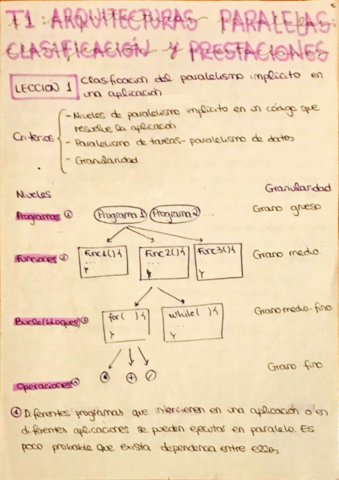 T1: ARQUITECTURAS PARALELAS:
CLASIFICACIÓN Y PRESTACIONES
LECCION 1 Clasificación del paralelismo implícito en
una aplicación
Criterios
- Niveles de paralelismo implícito en un código que
resuelve la aplicación
- Paralelismo de tareas - paralelismo de datos
- Granularidad
Niveles Granularidad
Programas ① Programa 1 Programa 2 ... Grano grueso
Funciones ② Func1(){ Func2(){ Func3(){ Grano medio
... ... ...
} } }
Bucle/bloques ③ for( ){ while( ){ Grano medio-fino
... ...
} }
Operaciones ④ * + / Grano fino
① Diferentes programas que intervienen en una aplicación o en
diferentes aplicaciones se pueden ejecutar en paralelo. Es
poco probable que exista dependencia entre ellos